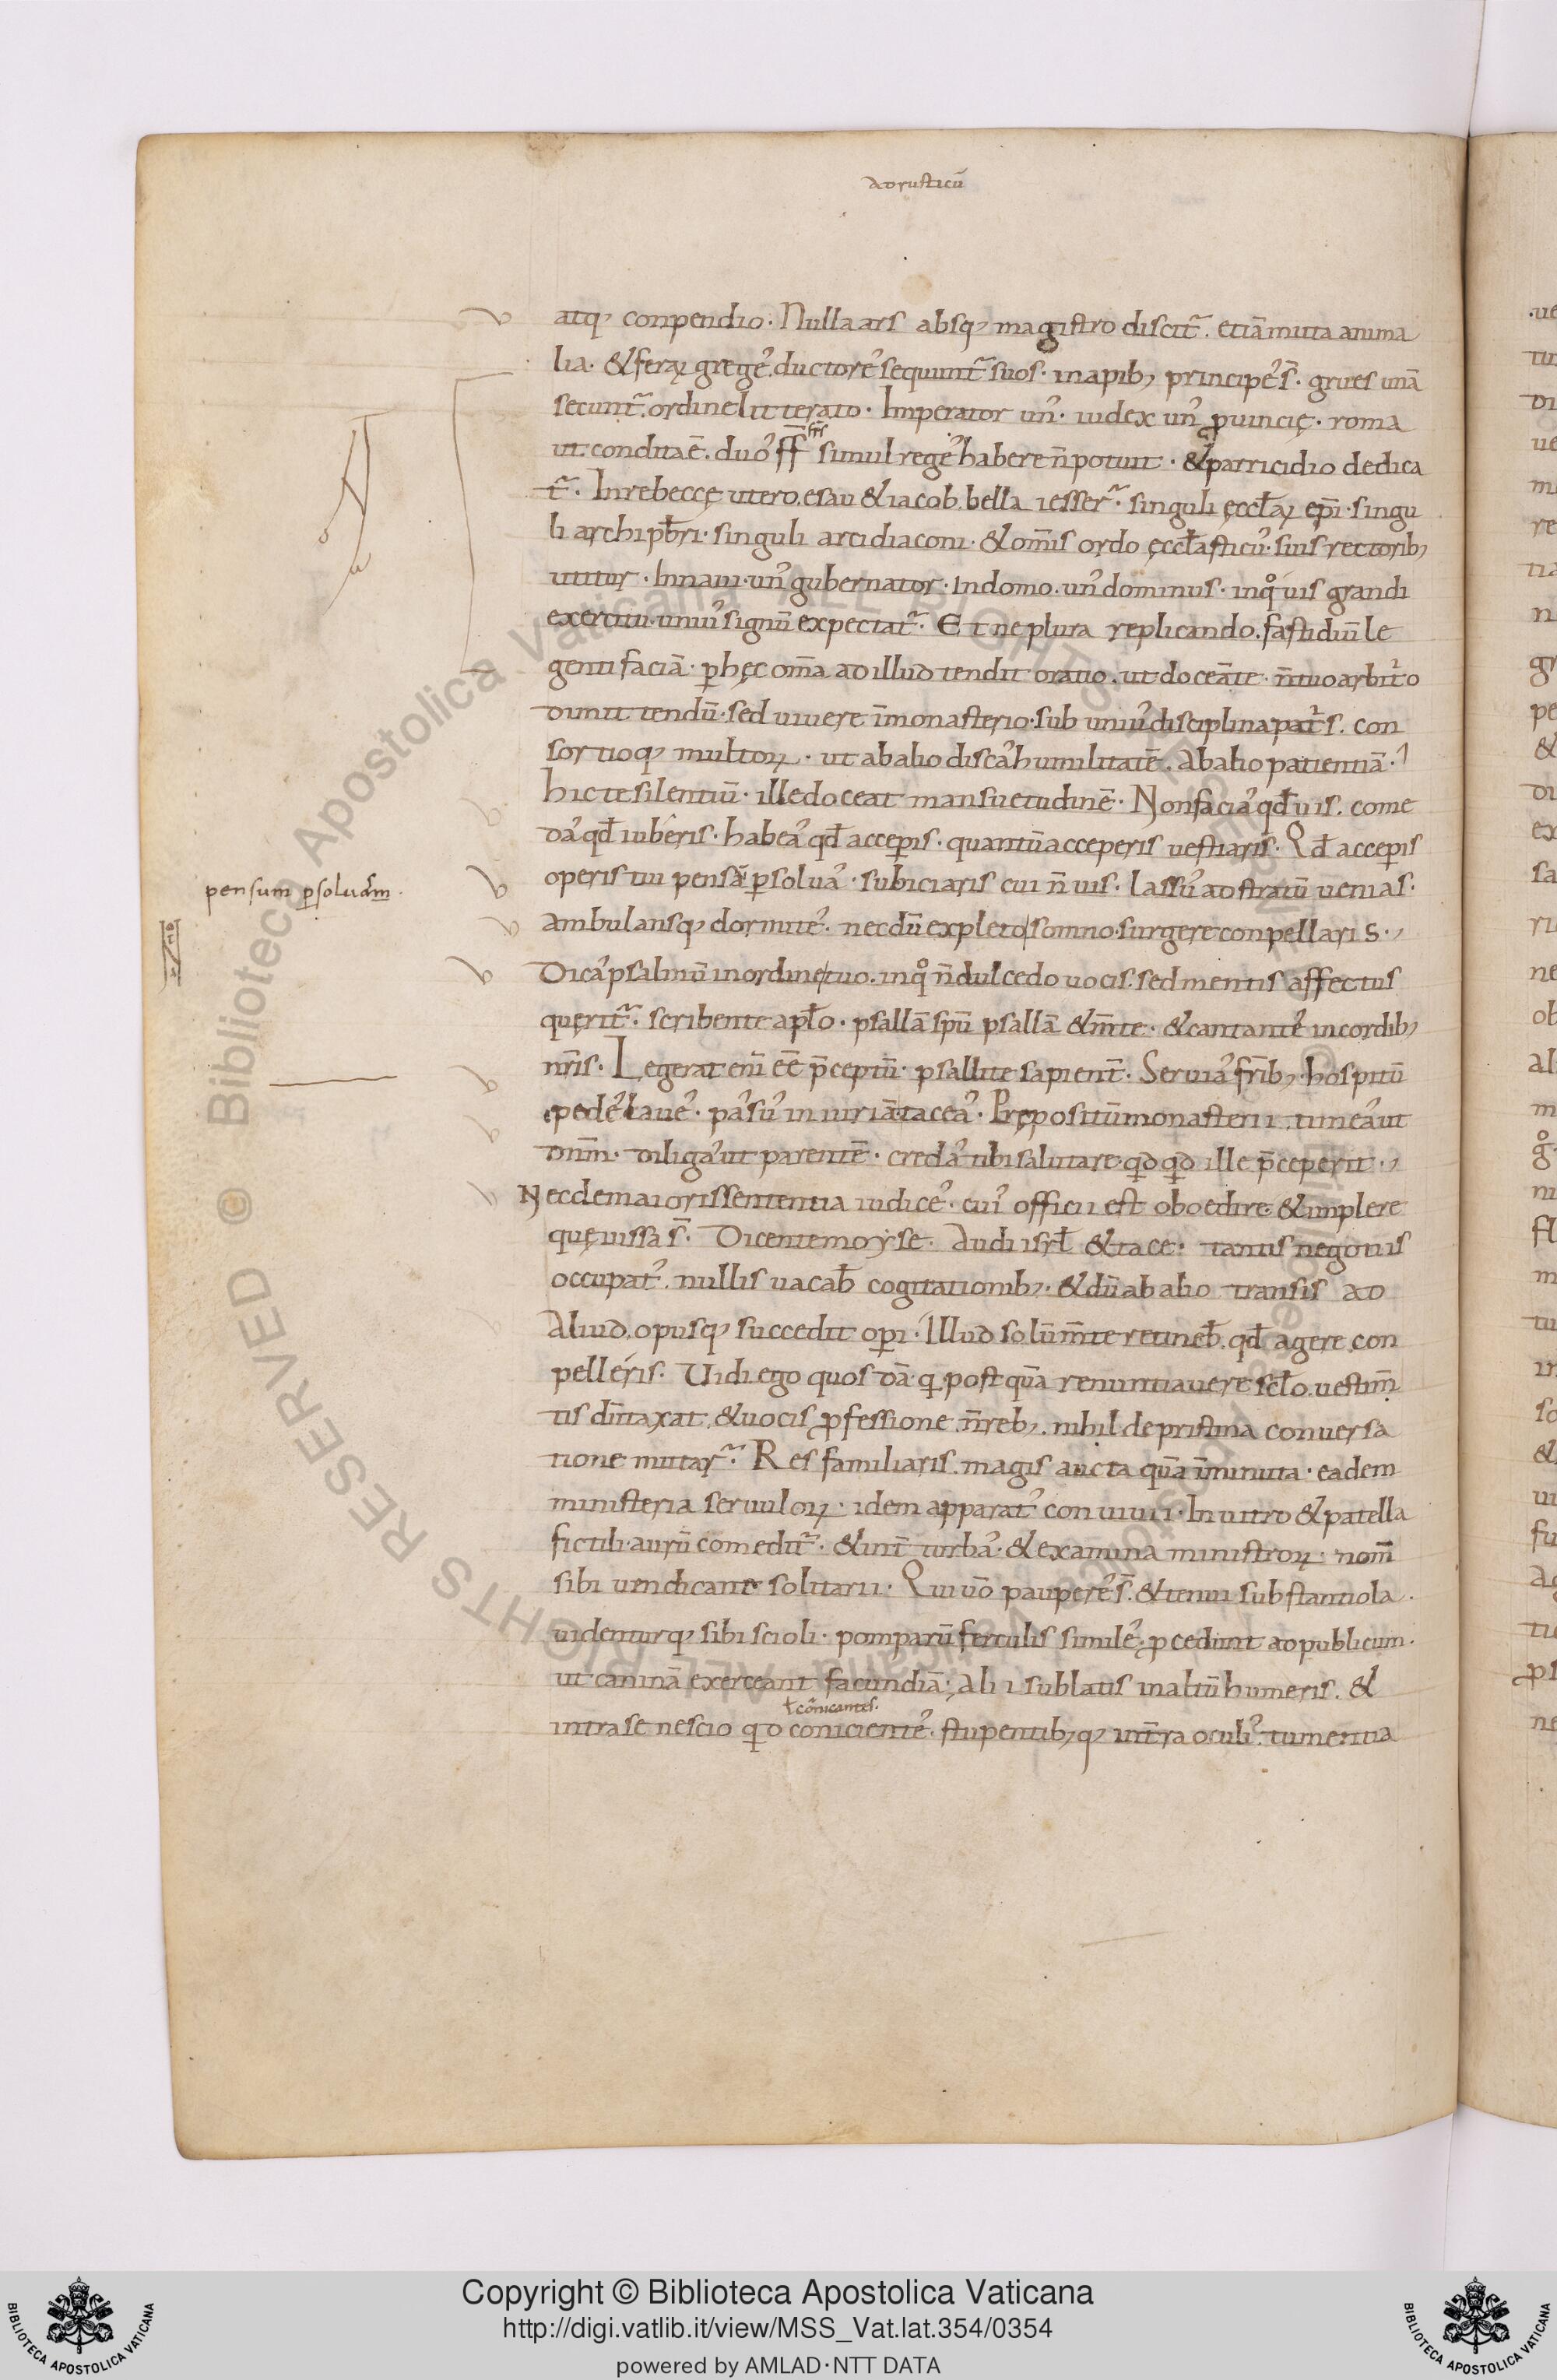 ad rusticū
atq; conpendio. Nulla ars absq; magistro discit͂. etiā muta anima
lia. & feraꝝ gregeˀ ductoreˀ sequunt͂ suos. in apib; principeˀ s̄. grues unā
secunt͂ ordine litterato. Imperator unˀ. iudex unˀ ꝓuincię. roma
ut condita ē. duoˀ ff̄ simul regeˀ habere n̄ potuit. & parricidio dedica
t͂. In rebeccę utero. esau & iacob bella iesser͂. singuli ęccłaꝝ ep̄i. singu
li archip̄bri. singuli arcidiaconi. & om̄is ordo ęccłasticuˀ suis rectorib;
utitur. In naui. unˀ gubernator. In domo. unˀ dominus. in qͦuis grandi
exercitu. uniuˀ signū expectat͂. Et ne plura replicando. fastidiū le
genti faciā. ꝑ hęc om̄a ad illud tendit oratio. ut doceā te. n̄ tuo arbitͥo
dimittendū. sed uiuere ī monasterio. sub uniuˀ disciplina patͥs. con
sortioq; multoꝝ. ut ab alio discaˀ humilitatē. Ab alio patientiā.
hic te silentiū. ille doceat mansuetudinē. Non faciaˀ qđ uis. come
daˀ qđ iuberis. habeaˀ qđ acceꝑis. quantū acceperis uestiaris. Qđ acceꝑis
operis tui pensā ꝑsoluaˀ. subiciaris cui n̄ uis. lassuˀ ad stratū uenias.
pensum ꝑsoluām.
ambulansq; dormiteˀ. necdū expleto somno. surgere conpellaris.
Dicaˀ psalmū in ordine tuo. in qͦ n̄ dulcedo uocis. sed mentis affectus
querit͂. scribente apło. psallā spū psallā & m̄te. & cantanteˀ in cordib;
nr̄is. Legerat eni ēē p̄ceptū. psallite sapient̄. Seruiaˀ fr̄ib;. hospitū
pedeˀ laueˀ. paˀsuˀ iniuriā taceaˀ. Prępositū monasterii. timeaˀ ut
dnm̄. diligaˀ ut parentē. credaˀ tibi salutare. qd qd ille p̄ceperit.
Nec de maioris sententia iudiceˀ. cuiˀ officii est oboedire & implere
quę iussa s̄. Dicente moyse. Audi isrł & tace. tantis negotiis
occupatˀ. nullis uacab̄ cogitationib;. & dū ab alio transis ad
Aliud. opusq; succedit oꝑi. Illud solū m̄te retineb̄. qđ agere con
pelleris. Uidi ego quosdā. q̣ postquā renuntiauere scło. uestim̄
tis dūtaxat. & uocis ꝓfessione. n̄ reb;. nihil de pristina conuersa
tione mutar͂. Res familiaris. magis aucta quā īminuta. eadem
ministeria seruuloꝝ. idem apparatˀ conuiuii. In uitro & patella
fictili. aurū comedit͂. & int̄ turbaˀ. & examina ministroꝝ. nom̄
sibi uendicant solitarii. Qui uō paupereˀ s̄. & tenui substantiola.
uidenturq; sibi scioli. pomparū ferculis simileˀ. ꝓcedunt ad publicum.
ut caninā exerceant facundiā. Alii sublatis in altū humeris. &
ł cōnicantes.
intra se nescio qd conicienteˀ. stupentib; q; in t̄ra oculiˀ. tumentia
Copyright © Biblioteca Apostolica Vaticana
http://digi.vatlib.it/view/MSS_Vat.lat.354/0354
powered by AMLAD·NTT DATA